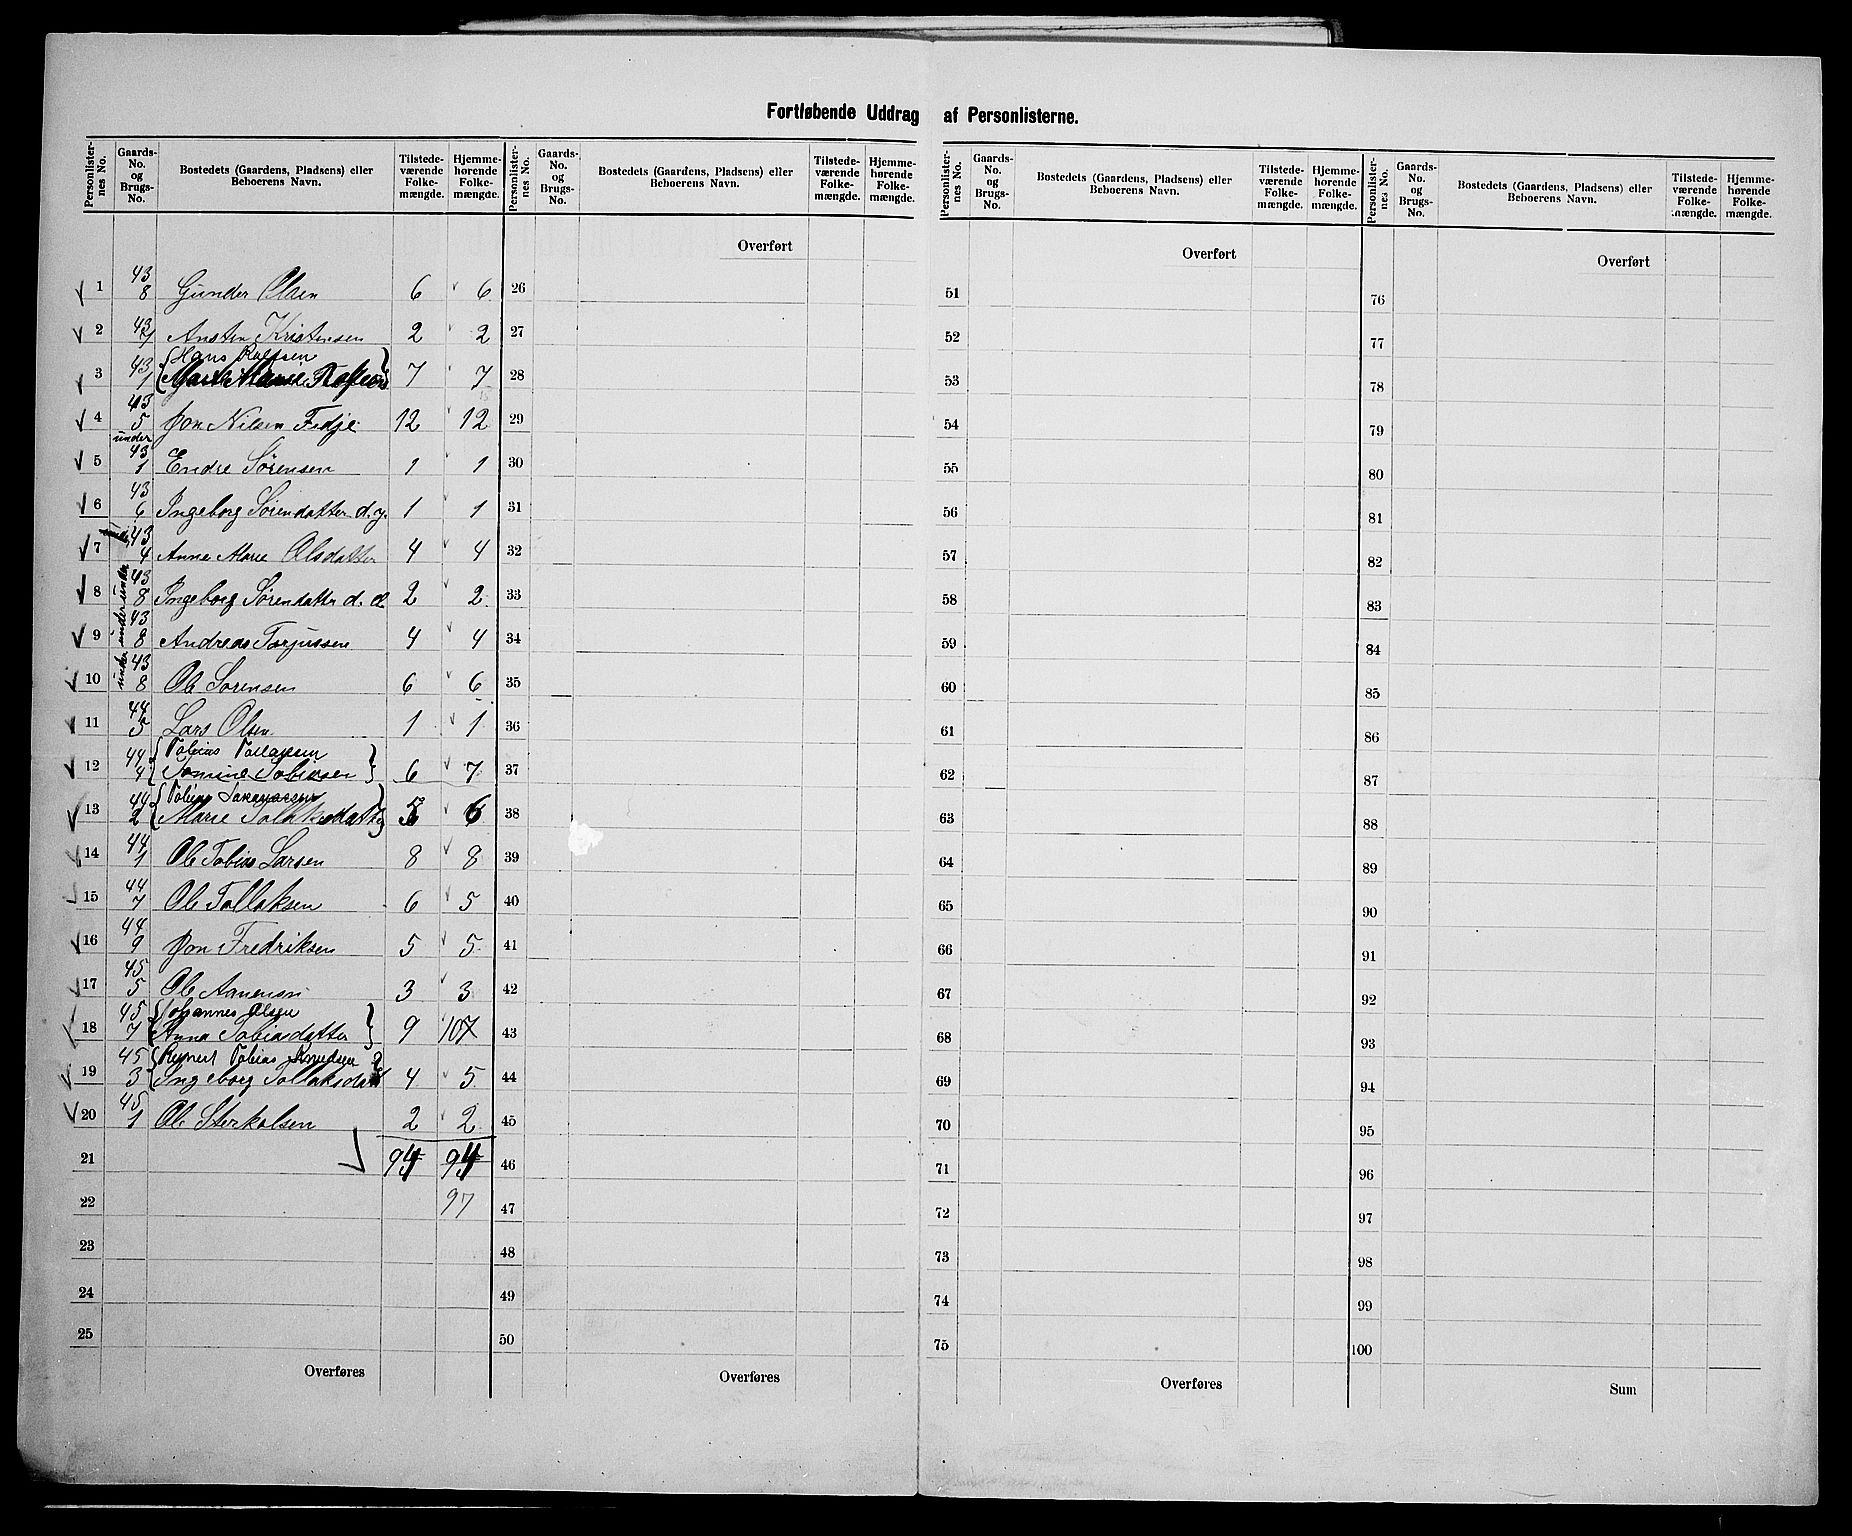 Fortløbende Uddrag af Personlisterne.
Personlister-nes No. Gaards-No. og Brugs-No. Bostedets (Gaardens, Pladsens) eller Beboerens Navn. Tilstede-værende Folke-mængde. Hjemme-hørende Folke-mængde.
Personlister-nes No. Gaards-No. og Brugs-No. Bostedets (Gaardens, Pladsens) eller Beboerens Navn. Tilstede-værende Folke-mængde. Hjemme-hørende Folke-mængde.
Personlister-nes No. Gaards-No. og Brugs-No. Bostedets (Gaardens, Pladsens) eller Beboerens Navn. Tilstede-værende Folke-mængde. Hjemme-hørende Folke-mængde.
Personlister-nes No. Gaards-No. og Brugs-No. Bostedets (Gaardens, Pladsens) eller Beboerens Navn. Tilstede-værende Folke-mængde. Hjemme-hørende Folke-mængde.
1 43 8 Gunder Olsen 6 6
2 43 7 Ansten Kristensen 2 2
Hans Rolfsen
3 43 1 Marie 7 7
4 43 5 Jon Nilsen Fedje 12 12
under
5 43 1 Endre Sørensen 1 1
6 43 6 Ingeborg Sørendatter d.y. 1 1
7 43 4 Anne Marie Olsdatter 4 4
8 under 43 8 Ingeborg Sørendatter d. 2 2
9 under 43 8 Andreas Torjussen 4 4
10 under 43 8 Ole Sørensen 6 6
11 44 5 Lars Olsen 1 1
Tobias
12 44 4 Tomine Tobiasen 6 7
Tobias
13 44 2 Marie Tollaksdatter 5 6
14 44 1 Ole Tobias Larsen 8 8
15 44 7 Ole Tollaksen 6 5
16 44 9 Jon Fredriksen 5 5
17 45 5 Ole Aanensen 3 3
Johannes Olsen
18 45 7 Anna Tobiasdatter 9 10
Reinert Tobias Knudsen
19 45 3 Ingeborg Tollaksdatt 4 5
20 45 1 Ole Sterkolsen 2 2
21 94 94
22 97
23
24
25
Overføres
Overført
26
27
28
29
30
31
32
33
34
35
36
37
38
39
40
41
42
43
44
45
46
47
48
49
50
Overføres
Overført
51
52
53
54
55
56
57
58
59
60
61
62
63
64
65
66
67
68
69
70
71
72
73
74
75
Overføres
Overført
76
77
78
79
80
81
82
83
84
85
86
87
88
89
90
91
92
93
94
95
96
97
98
99
100
Sum